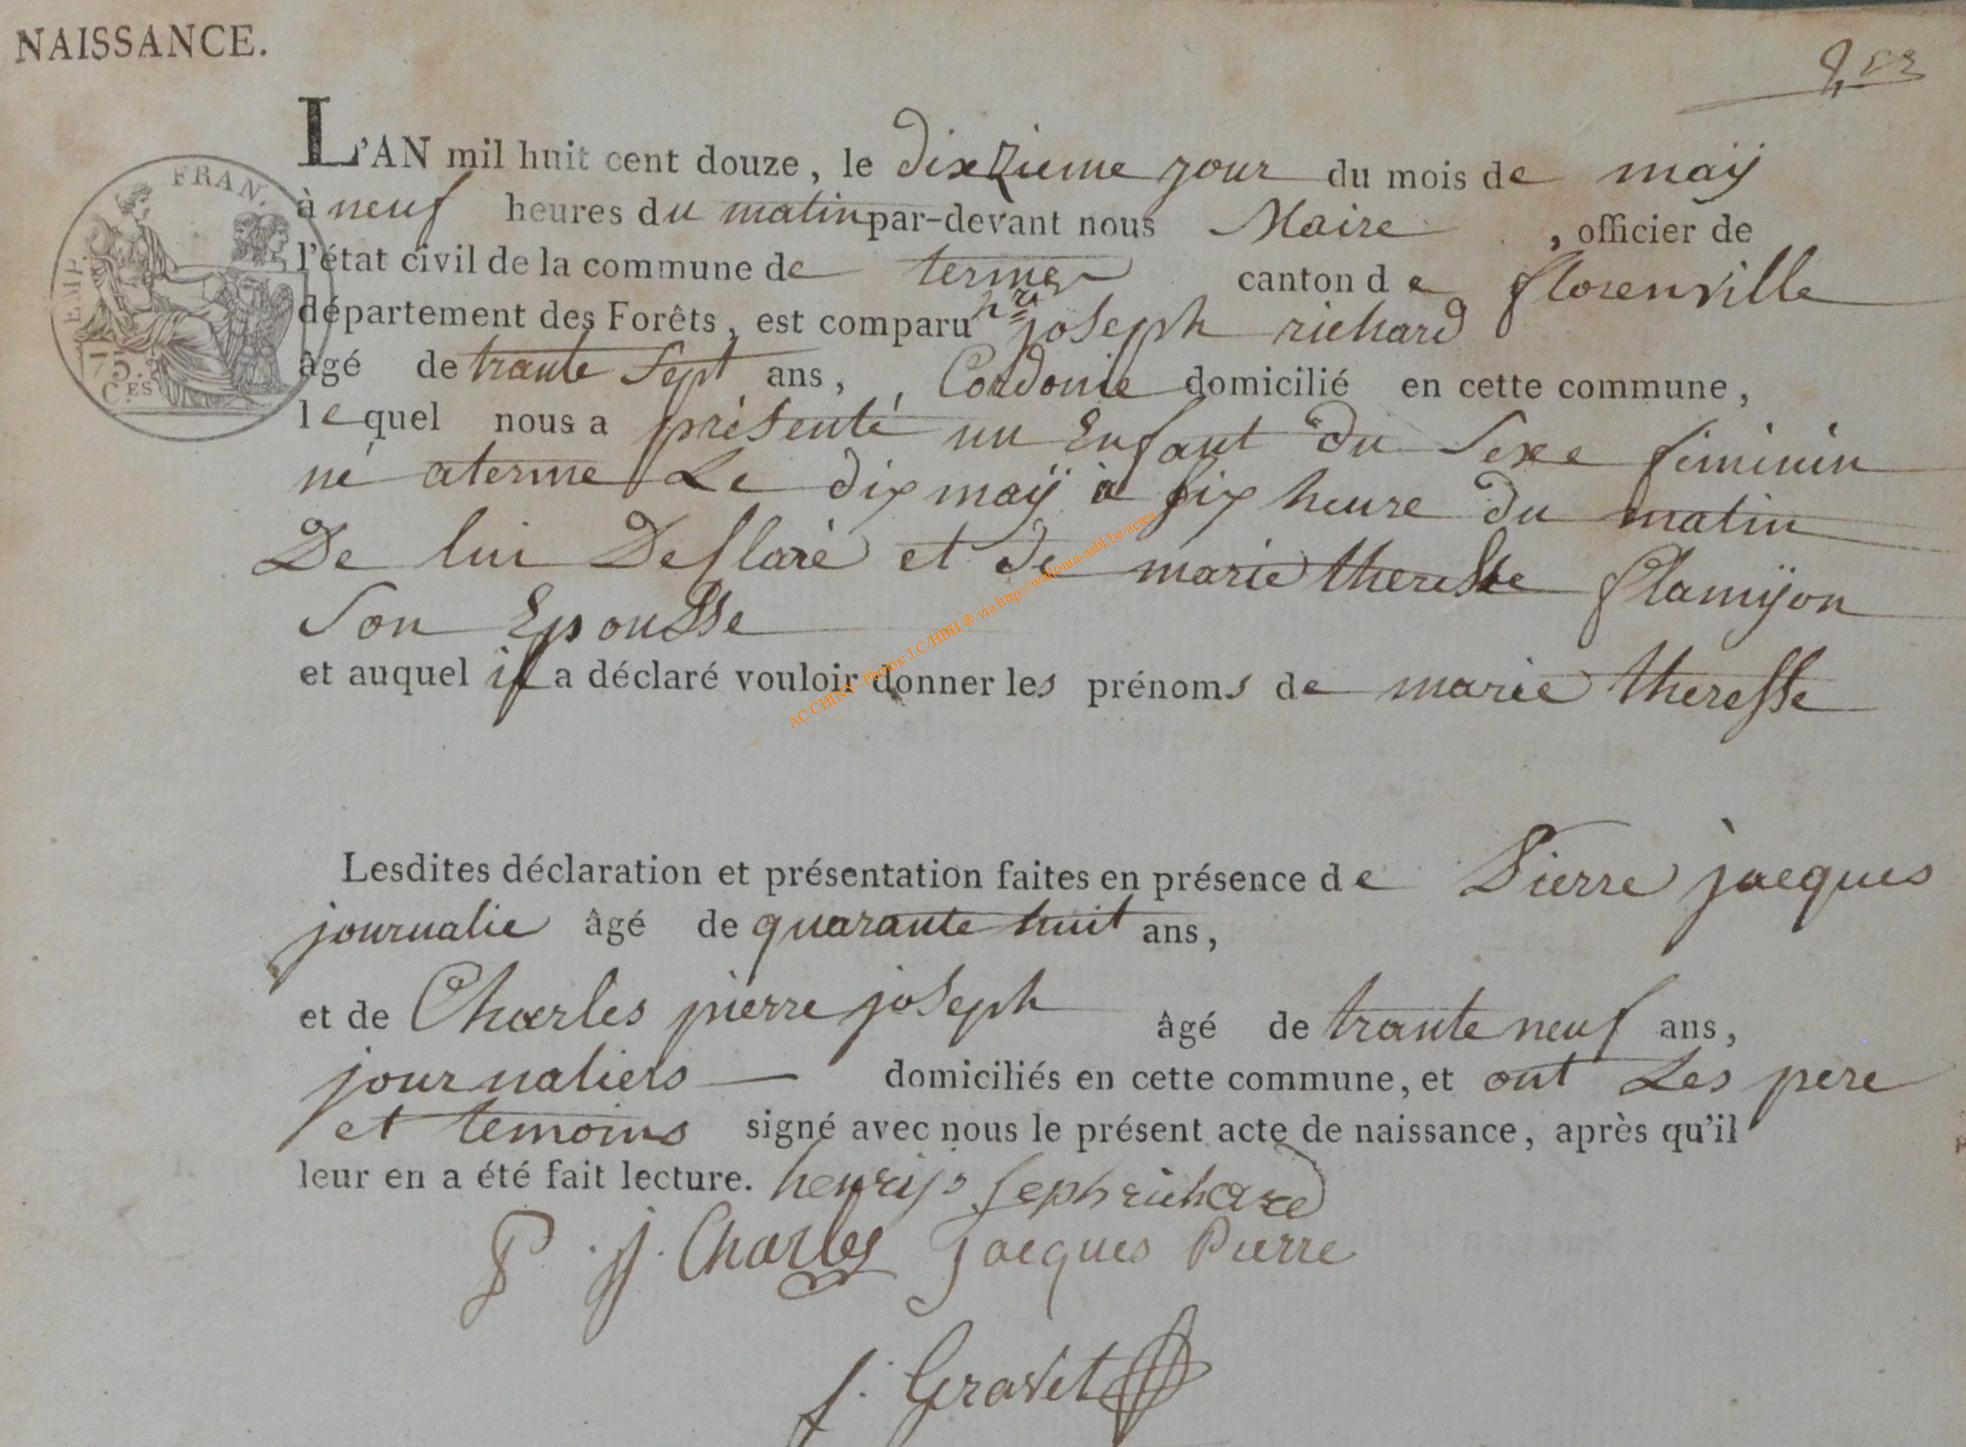 NAISSANCE.
L'AN mil huit cent douze, le dixzieme jour du mois de maÿ
à neuf heures du matin par-devant nous Maire, officier de
l'état civil de la commune de termes canton de florenville
département des Forêts, est comparu hri joseph richard
âgé de trante sept ans, Cordonie domicilié en cette commune,
lequel nous a présenté un Enfant du Sexe féminin
né aterme Le dix maÿ à six heure du matin
De lui Desclaré et de marie theresse flamÿon
Son Epousse
et auquel il a déclaré vouloir donner les prénoms de marie theresse
Lesdites déclaration et présentation faites en présence de Pierre jacques
journalie âgé de quarante huit ans,
et de Charles pierre joseph âgé de trante neuf ans,
journaliers domiciliés en cette commune, et ont Les pere
et temoins signé avec nous le présent acte de naissance, après qu'il
leur en a été fait lecture. henrijo seph richard
P. j. Charles Jacques Pierre
f. Gravet
EMP. FRAN.
75. CES
AC CHINY - Photos: J.C/HBH ® via http://wallonia-asbl.be/actes